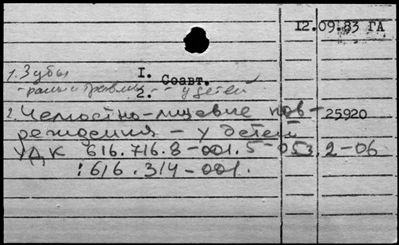 12.09.83 ГА
1. Зубы I. Соавт.
- раны и травмы - у детей
2.
2. Челюстно-лицевые пов- 25920
реждения - у детей
УДК 616.716.8-001.5-053.2-06
:616.314-001.